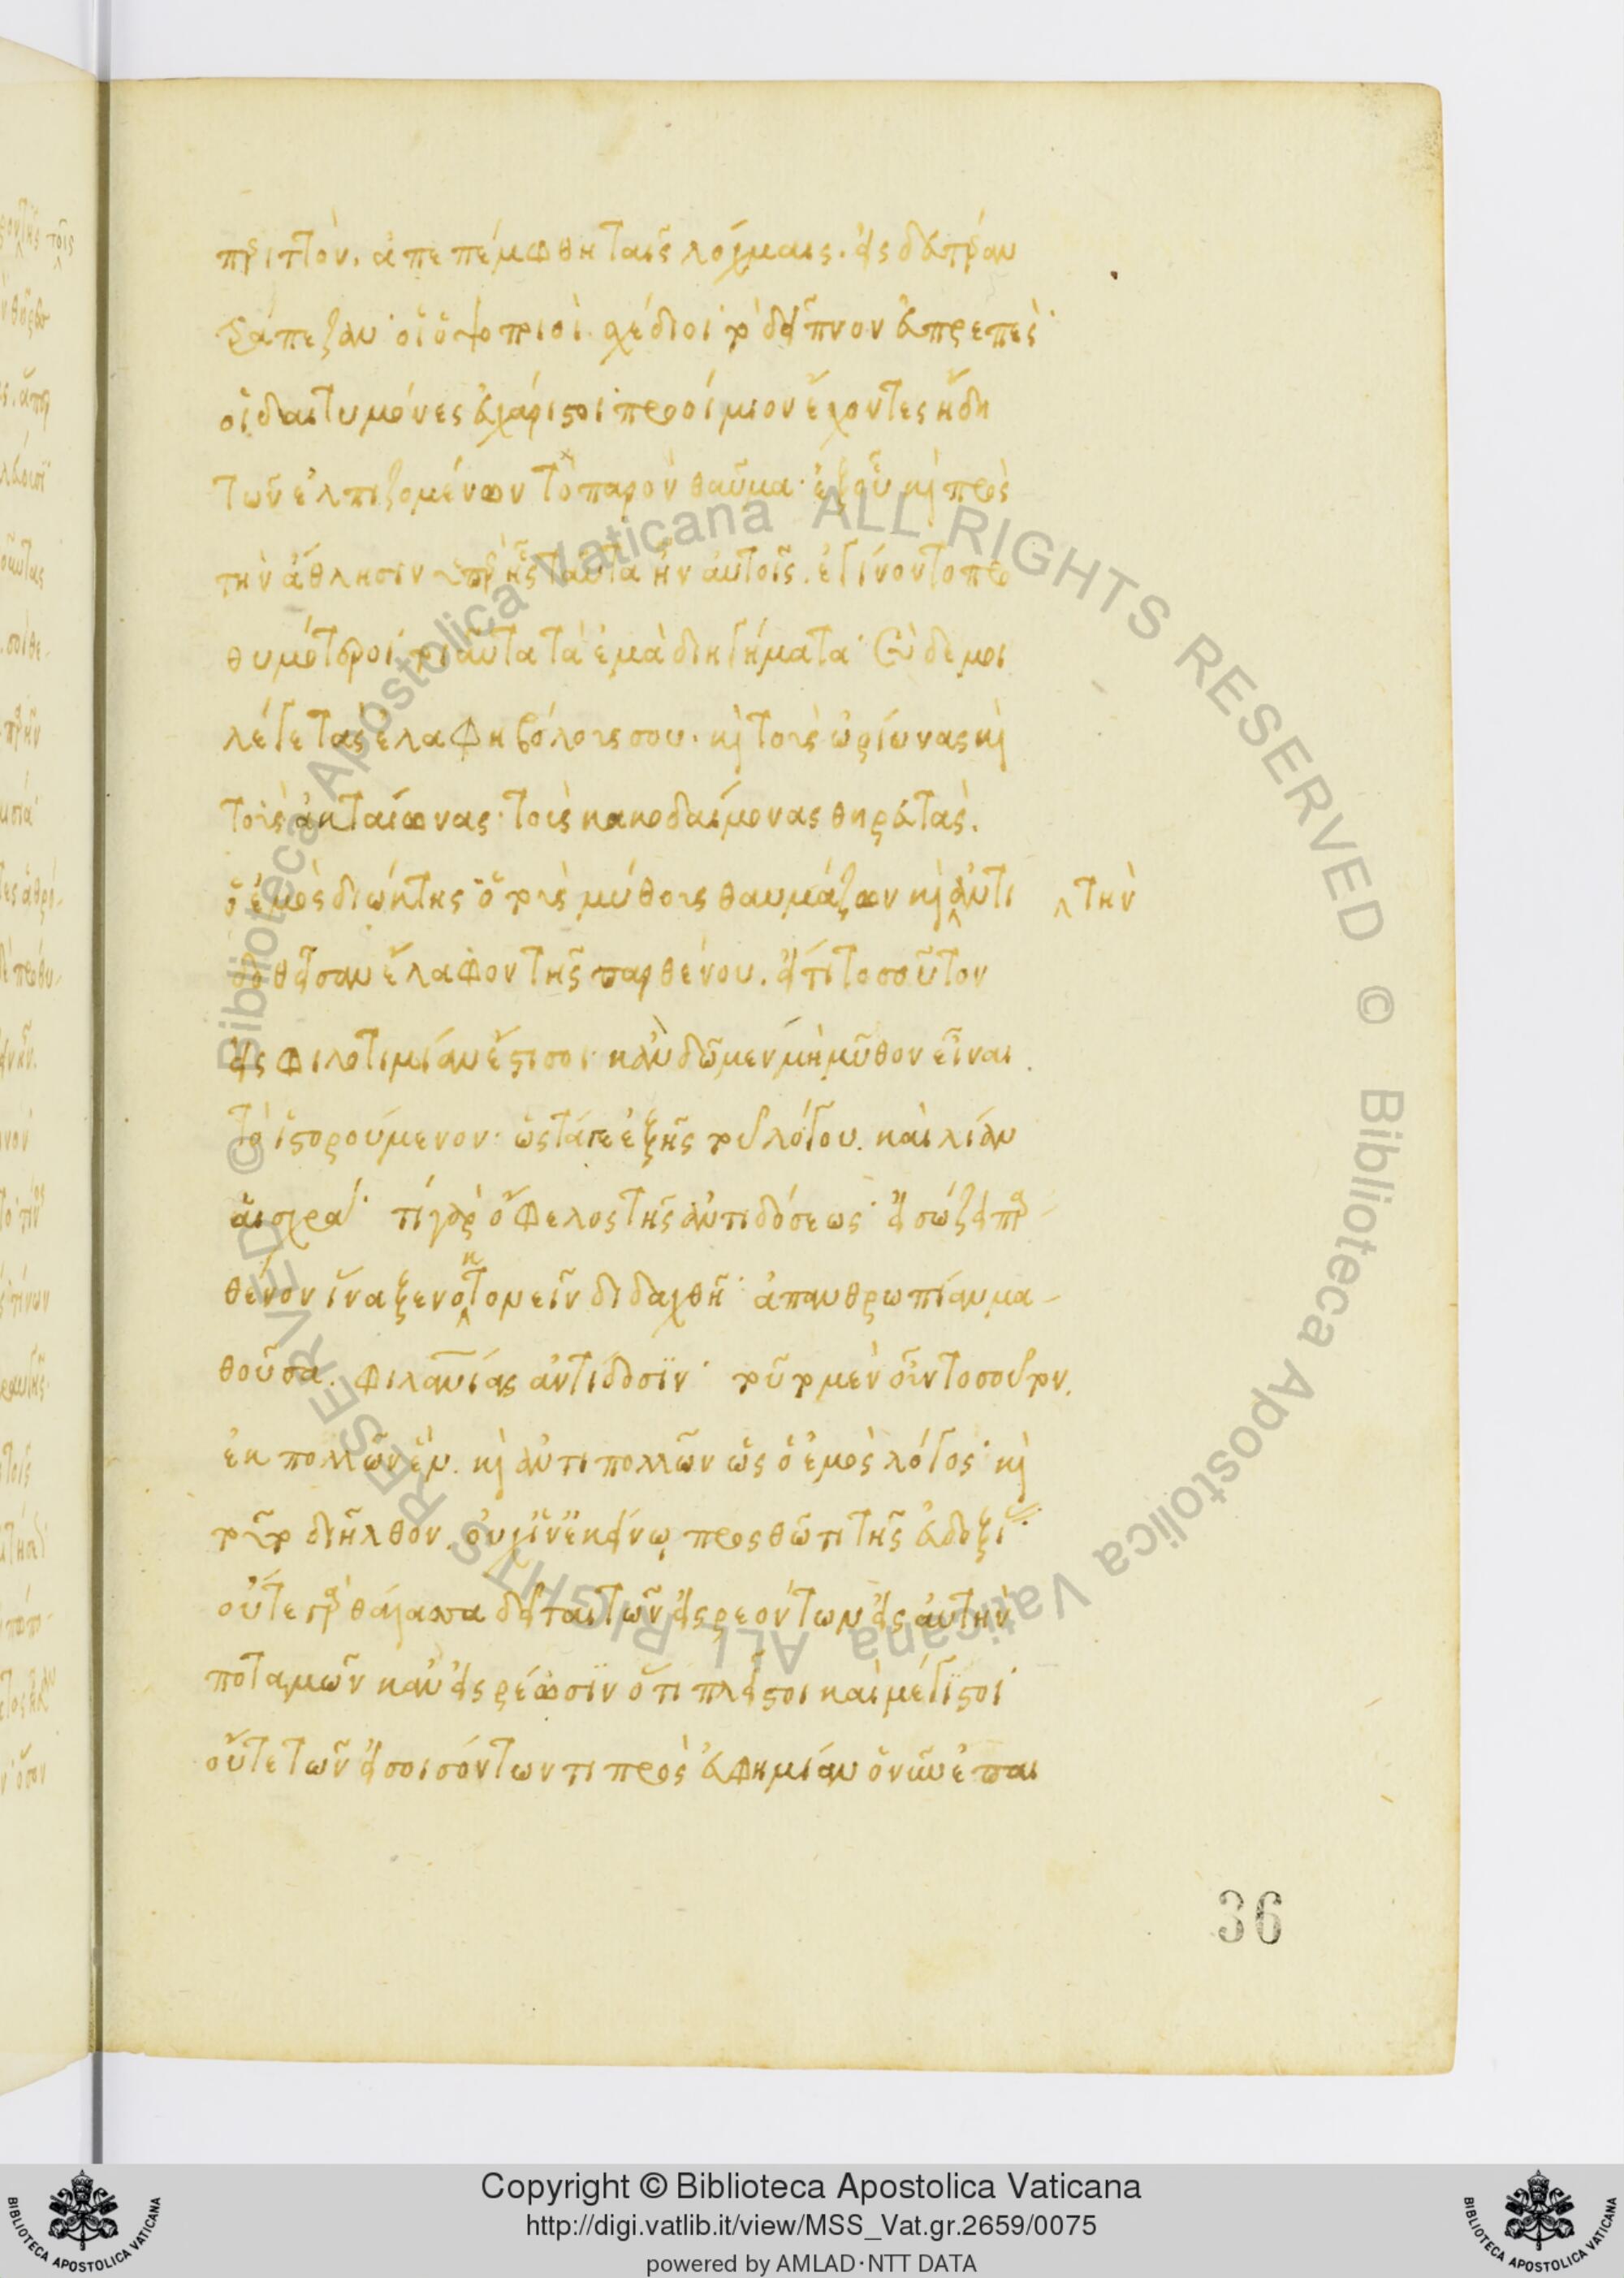 περιττὸν. ἀπεπέμφθη ταῖς λόχμαις. εἰς δευτέραν
τράπεζαν· οἱ ὀψοποιοὶ σχέδιοι· τὸ δεῖπνον εὐπρεπὲς·
οἱ δαιτυμόνες εὐχάριστοι· προοίμιον ἔχοντες ἤδη
τῶν ἐλπιζομένων τὸ παρὸν θαῦμα· ἐξ οὗ κὶ πρὸς
τὴν ἄθλησιν ὑπὲρ ἧς ταῦτα ἦν αὐτοῖς. ἐγίνοντο προ
θυμότεροι· τοιαῦτα τὰ ἐμὰ διηγήματα· σὺ δέ μοι
λέγε τὰς ἐλαφηβόλους σου. κὶ τοὺς ὠρίωνας κὶ
τοὺς ἀκταίωνας· τοὺς κακοδαίμονας θηρευτὰς.
ὁ ἐμὸς διώκτης ὁ τοὺς μύθους θαυμάζων κὶ ἀντι ‸ τὴν
δοθεῖσαν ἔλαφον τῆς παρθένου. εἴ τι τοσοῦτον
εἰς φιλοτιμίαν ἔστι σοι· κἂν δῶμεν μὴ μῦθον εἶναι
τὸ ἱστορούμενον· ὡς τά γε ἑξῆς τοῦ λόγου. καὶ λίαν
αἰσχρά· τί γὰρ ὄφελος τῆς ἀντιδόσεως· εἰ σώζει παρ
θένον ἵνα ξενοκτονεῖν διδαχθῇ· ἀπανθρωπίαν μα-
θοῦσα. φιλανίας ἀντίδοσϊν· τοῦτο μὲν οὖν τοσοῦτον.
ἐκ πολλῶν ἓν. κὶ ἀντι πολλῶν ὡς ὁ ἐμὸς λόγος· κὶ
τοῦτο διῆλθον. οὐχ ἵν' ἐκείνῳ προσθῶ τι τῆς εὐδοξί
οὔτε γὰρ θάλασσα δεῖται τῶν εἰσρεόντων εἰς αὐτὴν
ποταμῶν κἂν εἰσρέωσϊν ὅτι πλεῖστοι καὶ μέγϊστοι
οὔτε τῶν εἰσοισόντων τι πρὸς εὐφημίαν ὁ νῦν ἐπαι
36
Copyright © Biblioteca Apostolica Vaticana
http://digi.vatlib.it/view/MSS_Vat.gr.2659/0075
powered by AMLAD·NTT DATA